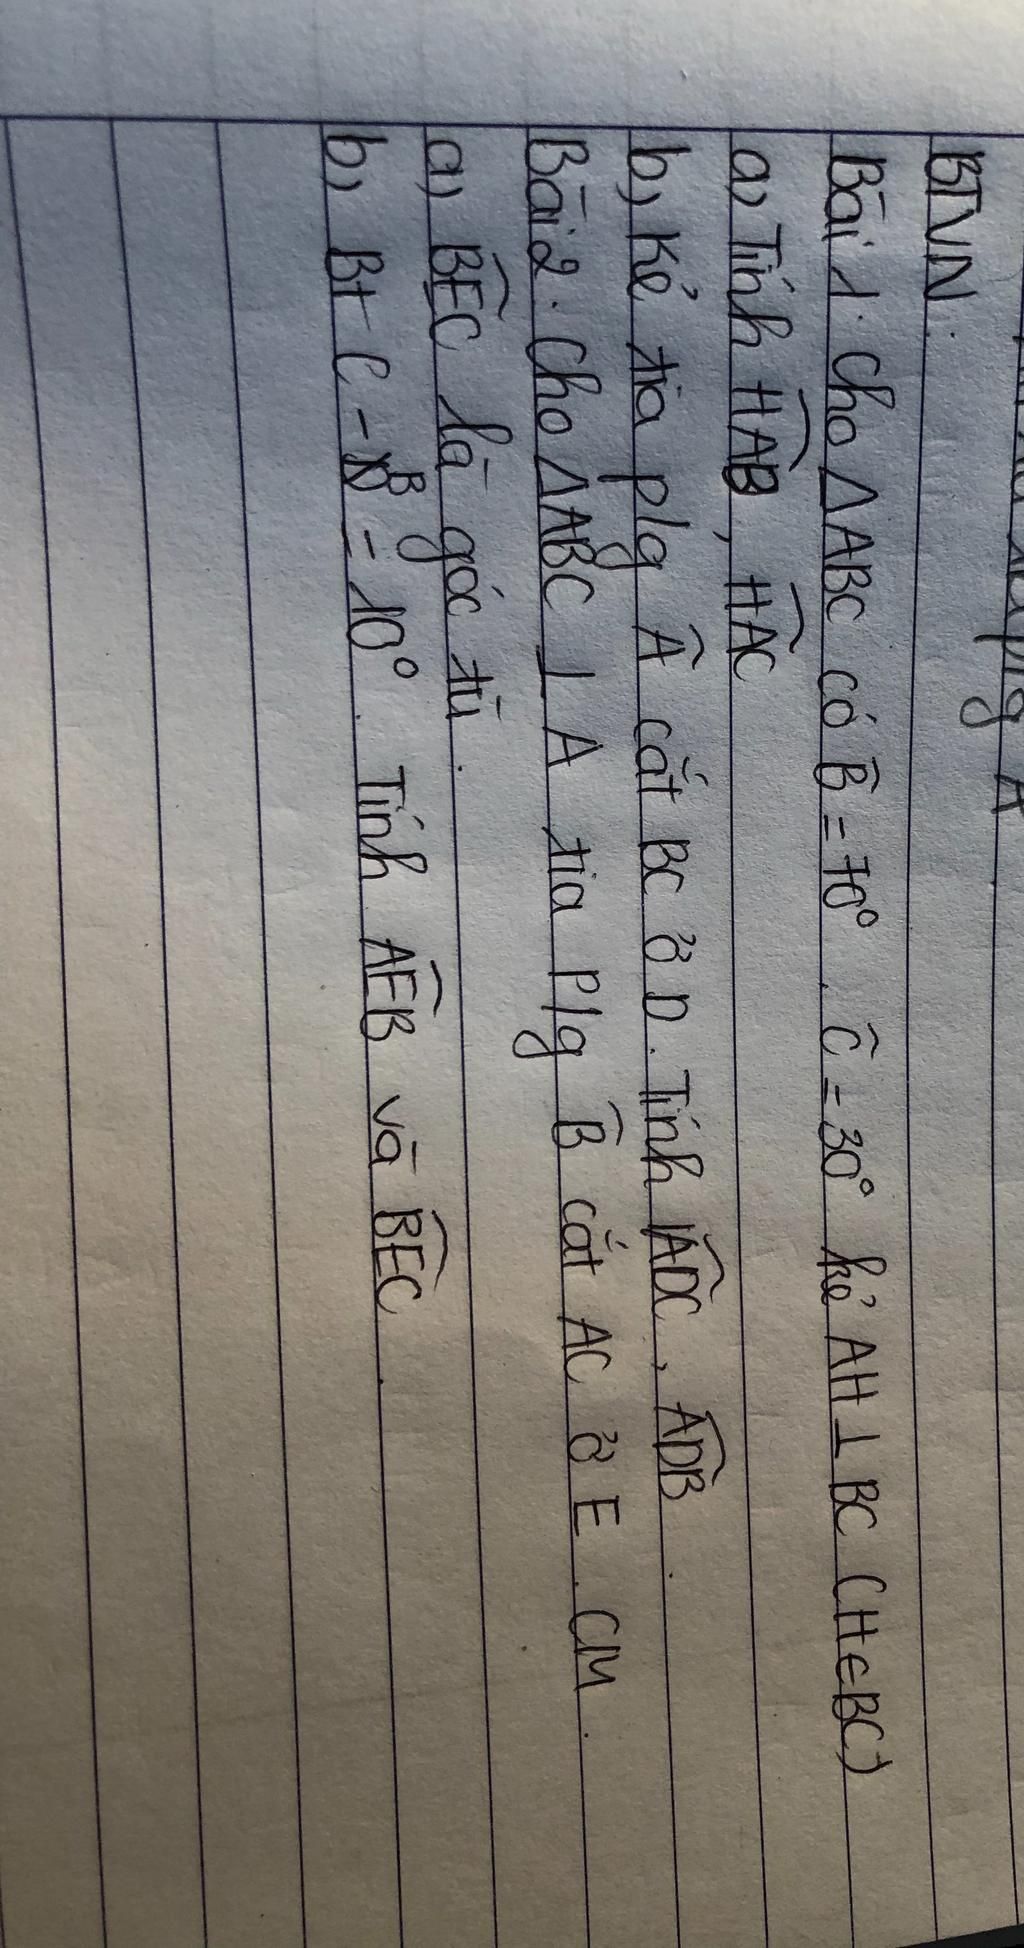 BTVN:
Bài 1: Cho △ABC có B̂ = 70°, Ĉ = 30° kẻ AH ⊥ BC (H ∈ BC)
a, Tính HAB, HAC
b, Kẻ tia p/g Â cắt BC ở D. Tính ADC, ADB.
Bài 2: Cho △ABC ⊥ A tia p/g B̂ cắt AC ở E. CM.
a, BEC là góc tù.
b, Bt C - B = 10°. Tính AEB và BEC.